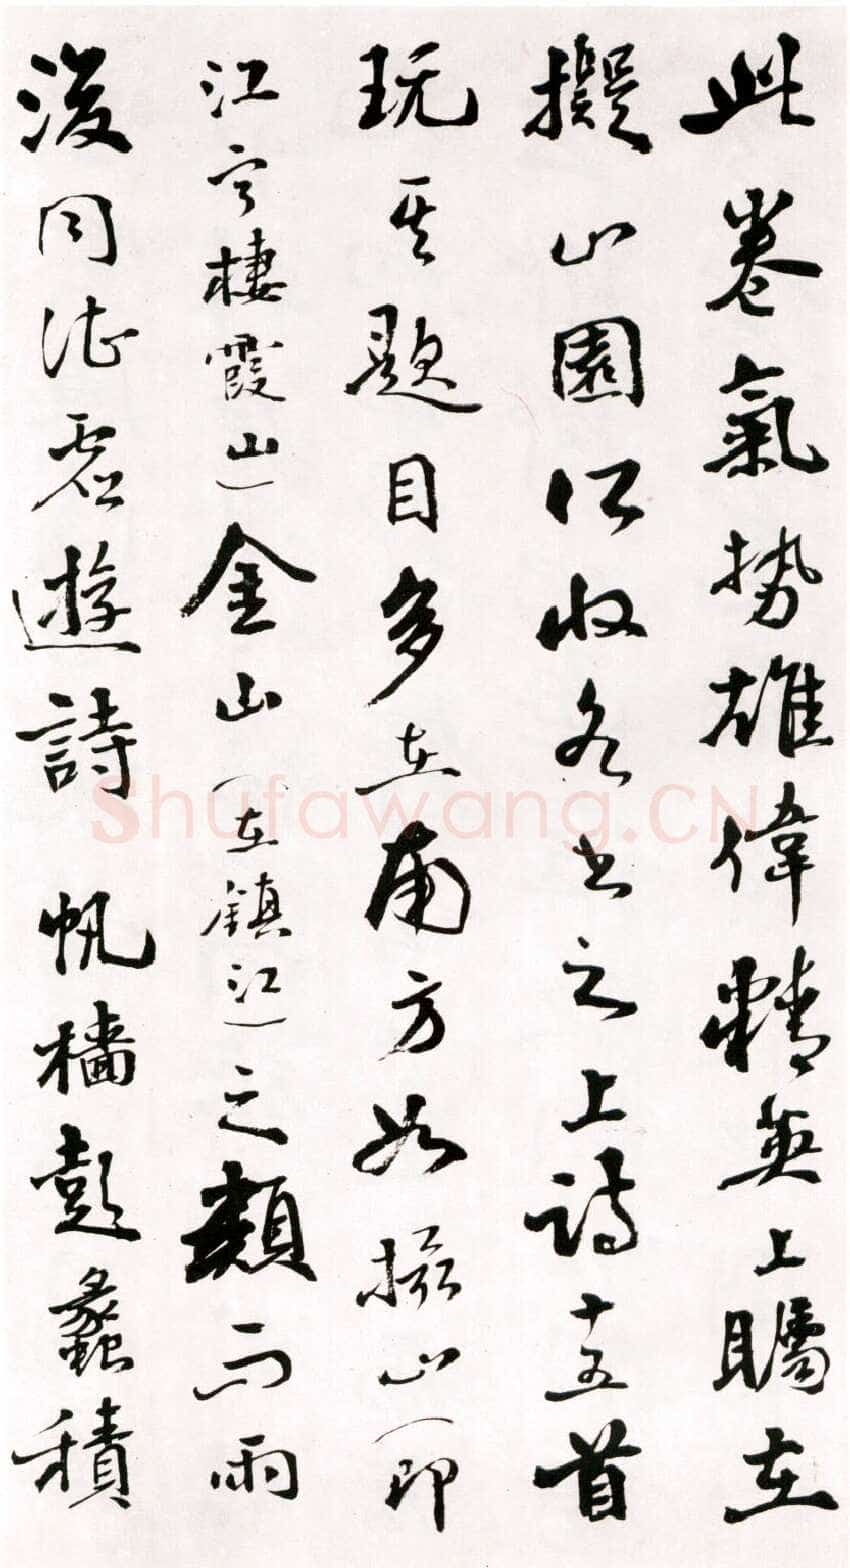 此卷氣勢雄偉精英上矚在
擬山園所收各書之上詩十五首
玩其題目多在南方如攝山(即
江寧棲霞山)金山(在鎮江)之類而雨
後同虛遊詩 帆檣彭蠡積
Shufawang.CN